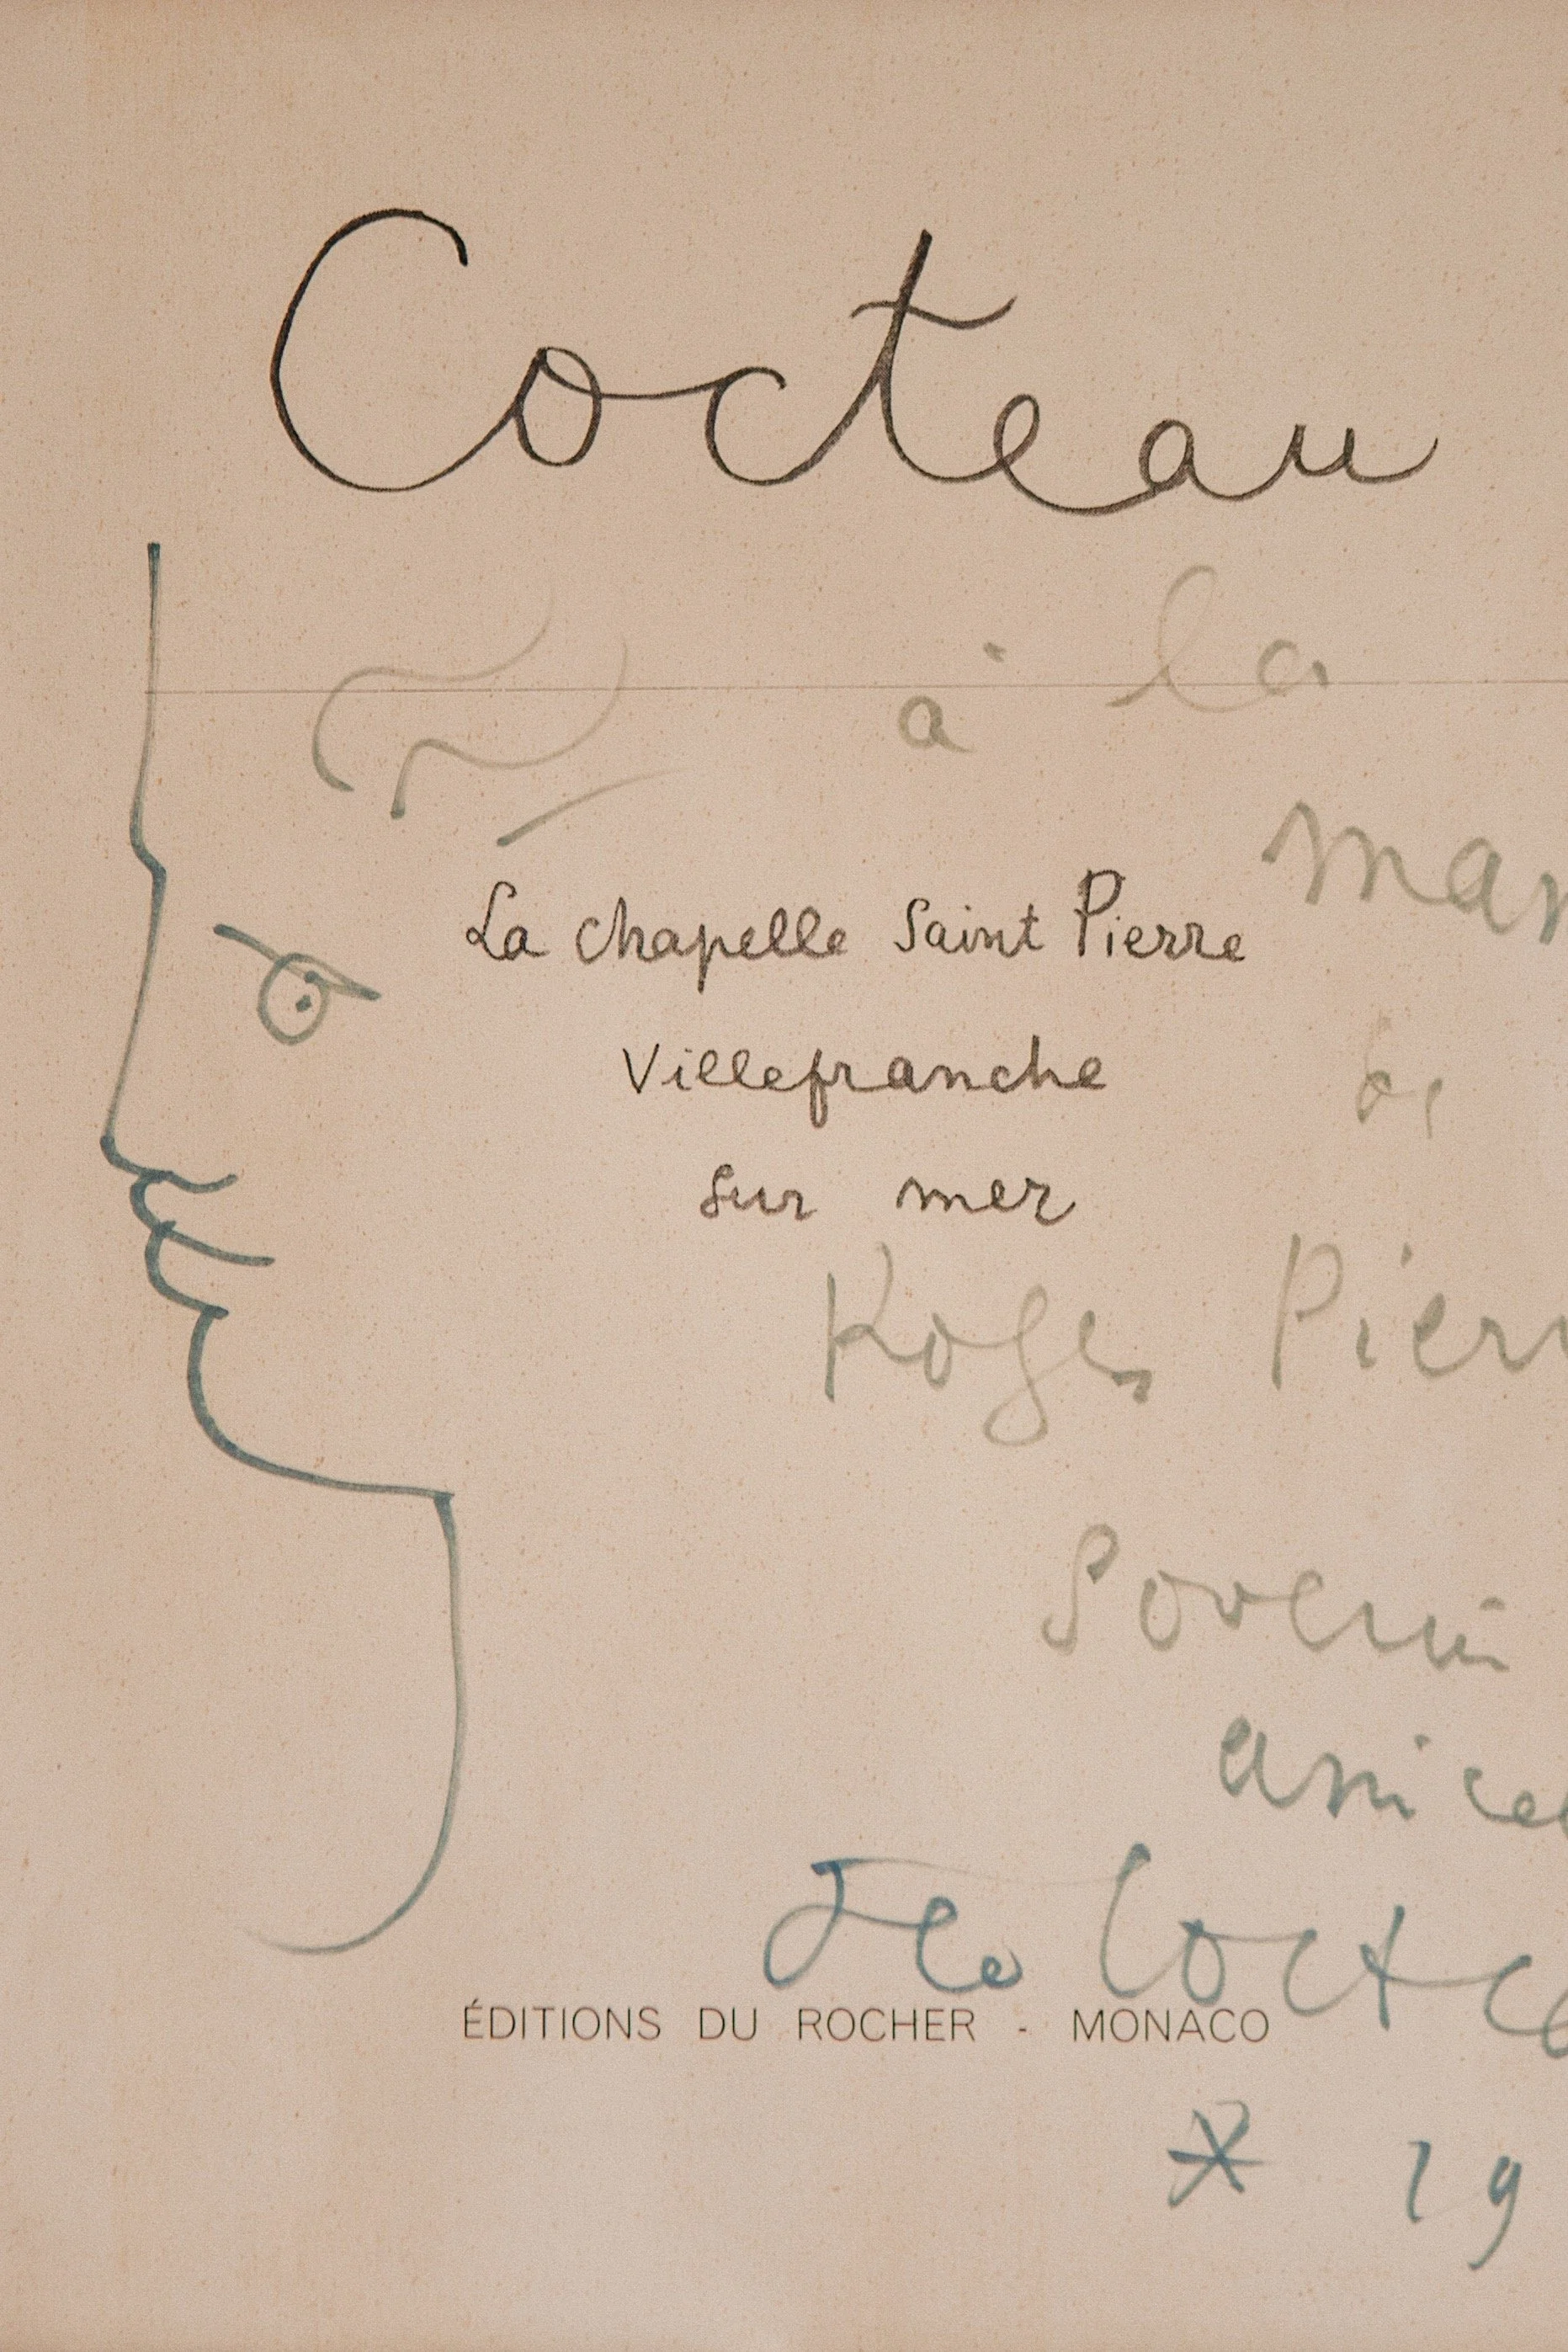 Cocteau
à la
La chapelle Saint Pierre
Villefranche
sur mer
Roger Pierr
Soveni
amical
Jean Cocte
ÉDITIONS DU ROCHER - MONACO
* 19